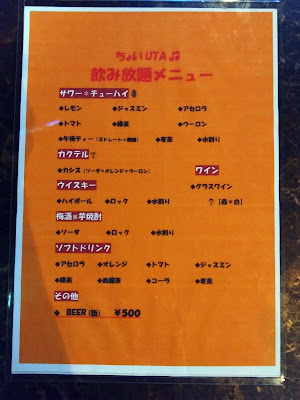 ちょい UTA ♫
飲み放題メニュー
サワー＊チューハイ
◆レモン ◆ジャスミン ◆アセロラ
◆トマト ◆緑茶 ◆ウーロン
◆午後ティー (ストレート＊ ◆麦茶 ◆水割り
カクテル
◆カシス (ソーダ＊オレンジ＊ウーロン)
ワイン
ウイスキー
◆グラスワイン
◆ハイボール ◆ロック ◆水割り
【赤＊白】
梅酒＊芋焼酎
◆ソーダ ◆ロック ◆水割り
ソフトドリンク
◆アセロラ ◆オレンジ ◆トマト ◆ジャスミン
◆緑茶 ◆烏龍茶 ◆コーラ ◆麦茶
その他
◆ BEER (缶) ￥500